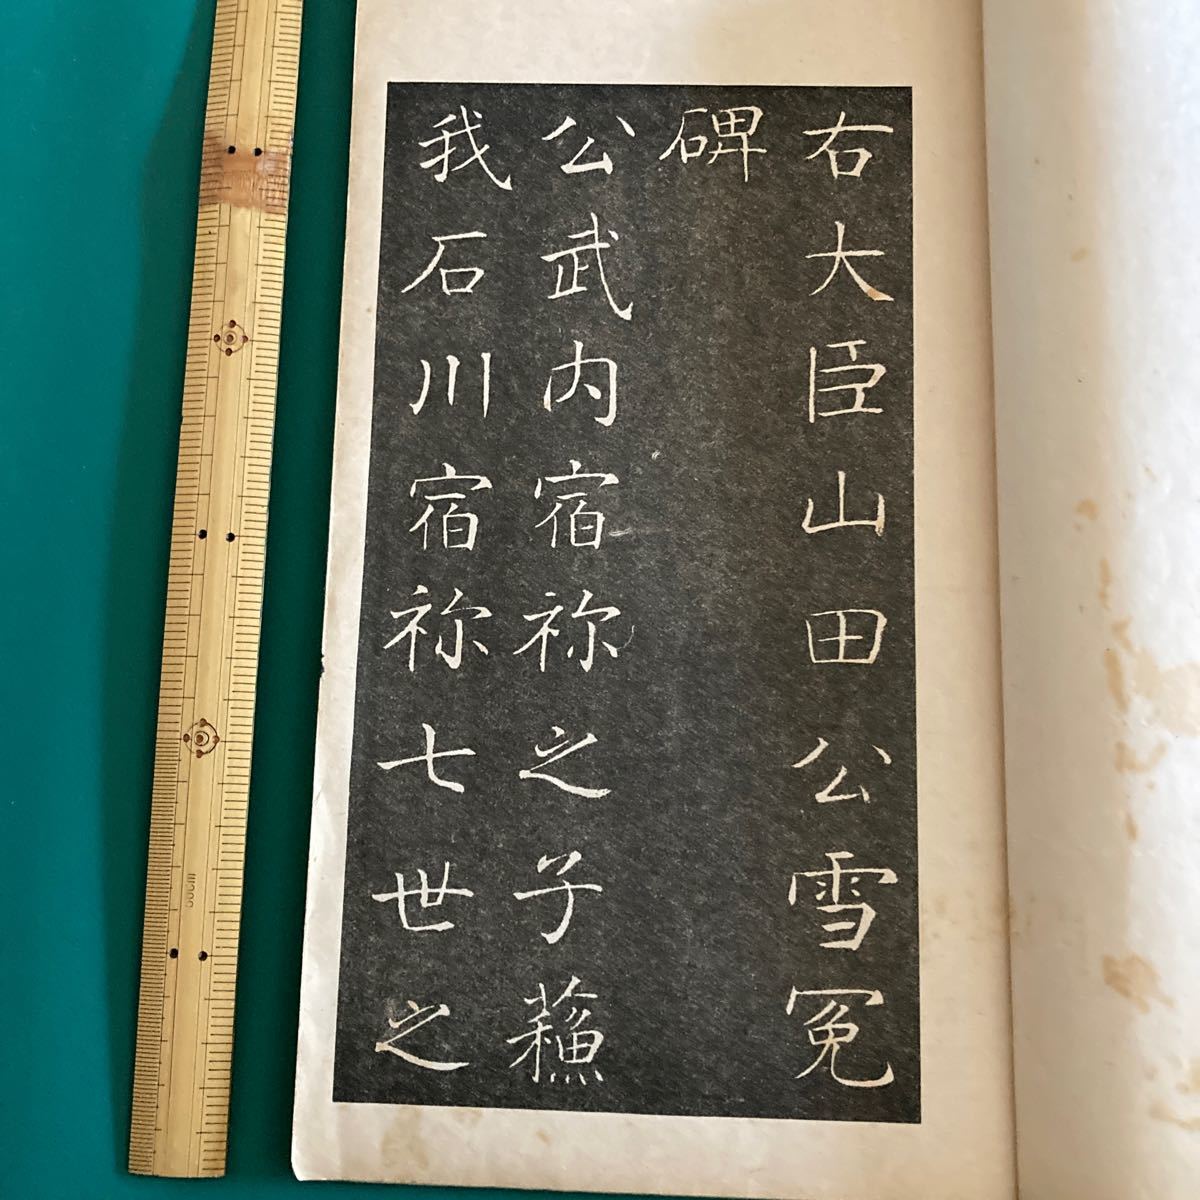 右大臣山田公雪冤
碑
公武内宿祢之子蘓
我石川宿祢七世之